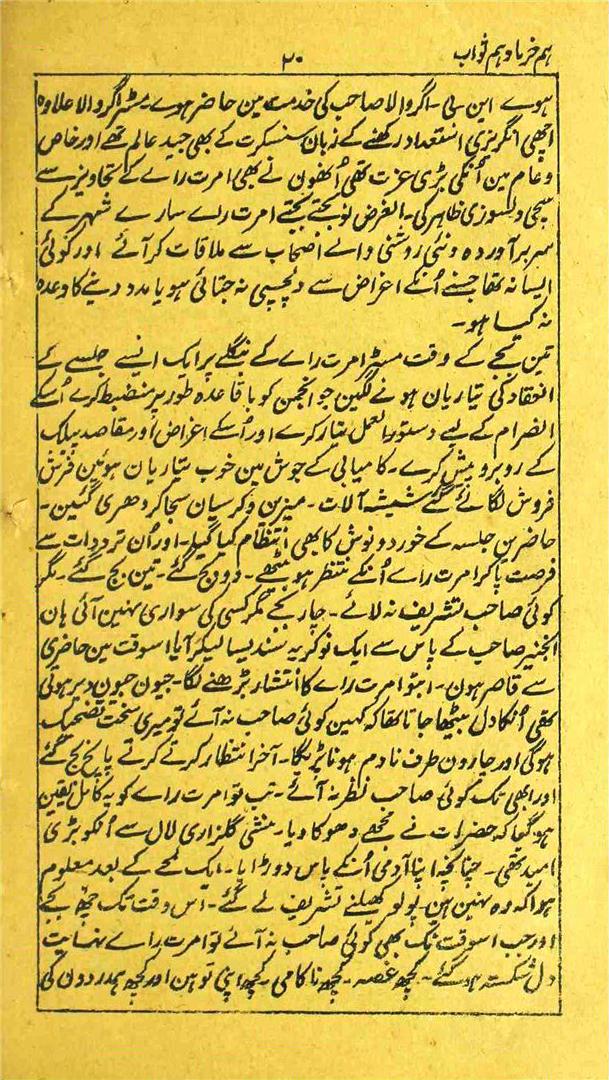 ہم خرما وہم ثواب
۲۰
ہوے این بی۔ اگروالا صاحب کی خدمت مین حاضر ہوے۔ مسٹر اگروالا علاوہ
اچھی انگریزی استعداد رکھنے کے زبان سنسکرت کے بھی جید عالم تھے اور خاص
و عام مین اُنکی بڑی عزت تھی اُنھون نے بھی امرت راے کے تجاویز سے
سچی دلسوزی ظاہر کی۔ الغرض نو بجتے بجتے امرت راے سارے شہر کے
سربرآوردہ و نئی روشنی والے اصحاب سے ملاقات کر آئے اور کوئی
ایسا نہ تھا جسنے اُنکے اغراض سے دلچسپی نہ جتائی ہو یا مدد دینے کا وعدہ
نہ کیا ہو۔
تین بجے کے وقت مسٹر امرت راے کے بنگلے پر ایک ایسے جلسے کے
انعقاد کی تیاریان ہونے لگین جو انجمن کو باقاعدہ طور پر منضبط کرے اُسکے
انصرام کے لیے دستورالعمل تیار کرے اور اُسکے اغراض اور مقاصد پبلک
کے روبرو پیش کرے۔ کامیابی کے جوش مین خوب تیاریان ہوئین فرش
فروش لگائے گئے شیشہ آلات۔ میزین و کرسیان سجا کر دھری گئین۔
حاضرین جلسہ کے خورد و نوش کا بھی انتظام کیا گیا۔ اور اُن ترددات سے
فرصت پا کر امرت راے اُنکے منتظر ہو بیٹھے۔ دو بج گئے۔ تین بج گئے۔ مگر
کوئی صاحب تشریف نہ لائے۔ چار بجے مگر کسی کی سواری نہین آئی ہان
انجنیر صاحب کے پاس سے ایک نوکر یہ سندیسا لیکر آیا اسوقت مین حاضری
سے قاصر ہون۔ اب تو امرت راے کا انتشار بڑھنے لگا۔ جیون جیون دیر ہوتی
تھی اُنکا دل بیٹھا جاتا تھا کہ کہین کوئی صاحب نہ آئے تو میری سخت تضحیک
ہوگی اور چارون طرف نادم ہونا پڑیگا۔ آخر انتظار کرتے کرتے پانچ بج گئے
اور ابھی تک کوئی صاحب نظر نہ آئے۔ تب تو امرت راے کو یہ کامل یقین
ہو گیا کہ حضرات نے مجھے دھوکا دیا۔ منشی گلزاری لال سے اُنکو بڑی
امید تھی۔ چنانچہ اپنا آدمی اُنکے پاس دوڑایا۔ ایک لمحے کے بعد معلوم
ہوا کہ وہ نہین ہین پولو کھیلنے تشریف لے گئے۔ اس وقت تک چھ بجے
اور جب اسوقت تک بھی کوئی صاحب نہ آئے تو امرت راے نہایت
دل شکستہ ہو گئے۔ کچھ غصہ۔ کچھ ناکامی۔ کچھ اپنی توہین اور کچھ ہمدردون کی